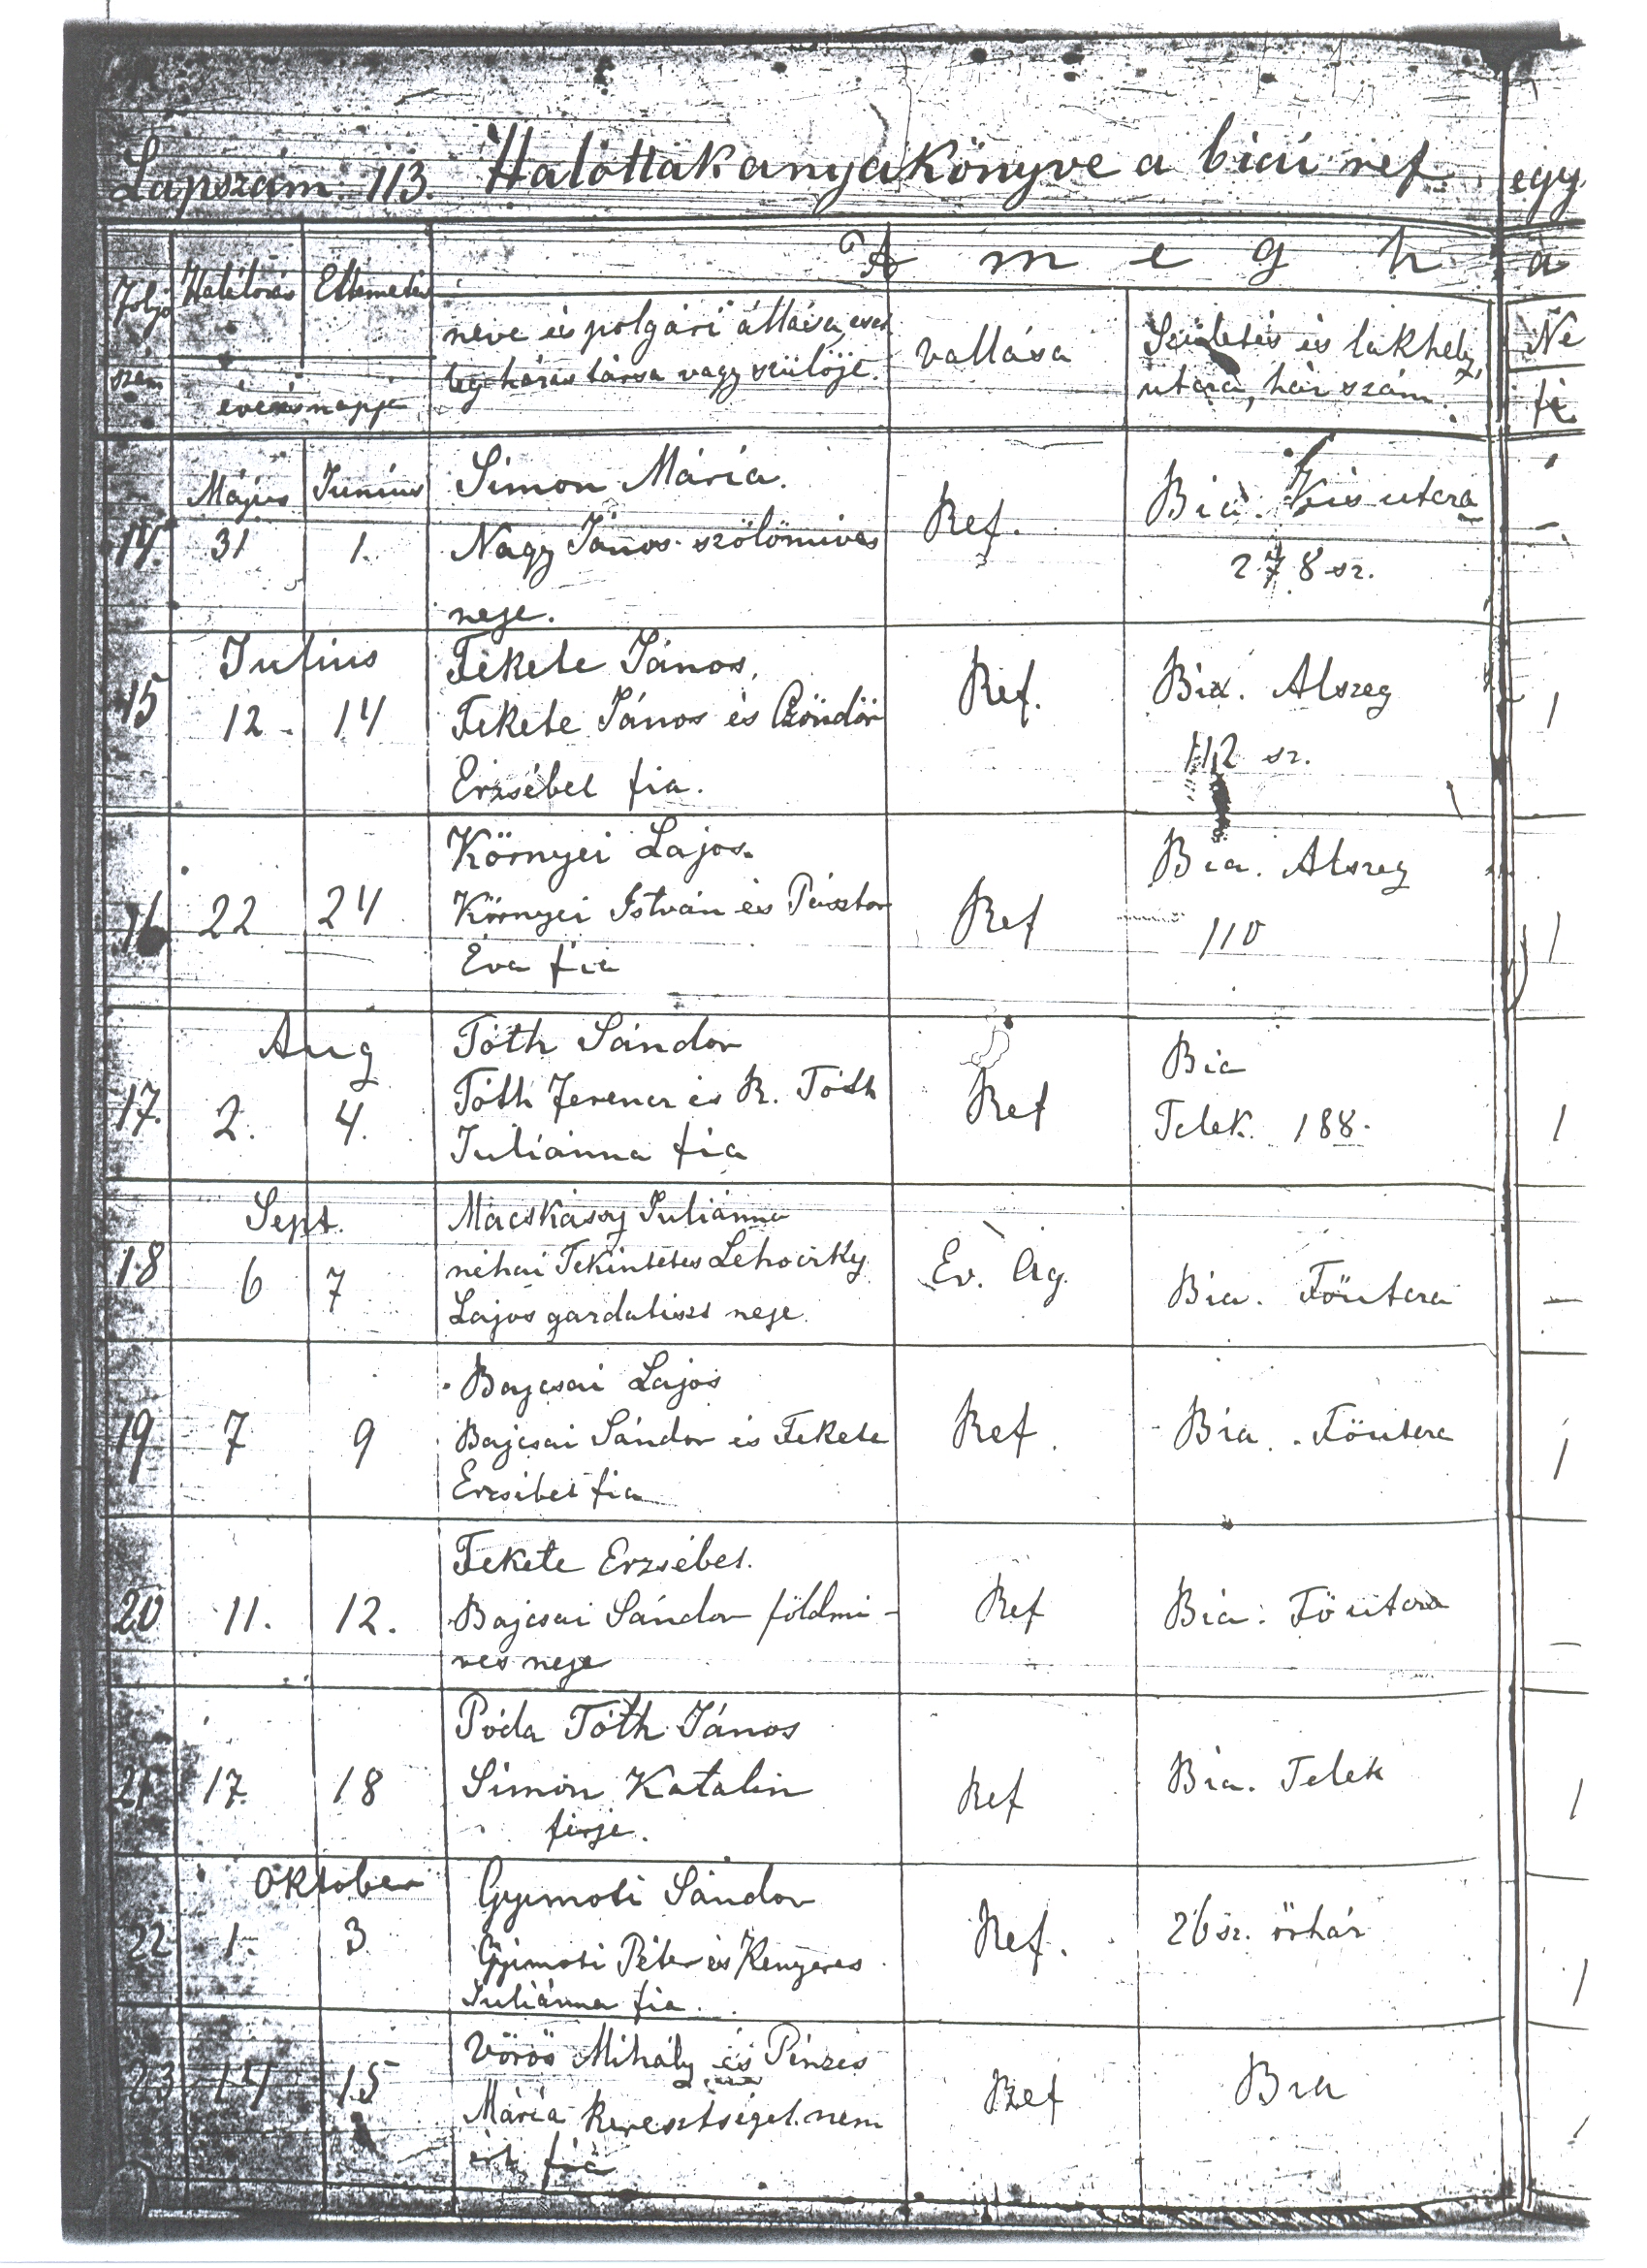 Lapszám. 113. Halottak anyakönyve a biai ref. egy
A m e g h a
Folyó szám
Halálozás Eltemetés
év és napja
neve és polgári állása, eset
leg házas társa vagy szülője.
vallása
Születés és lakhely,
utcza, ház szám.
Ne
fé
Május Június Simon Mária. Bia. Kis utcza
14. 31 1. Nagy János szőlőmives Ref. 278 sz.
neje.
Julius Fekete János.
15 12. 14 Fekete János és Czöndör Ref. Bia. Alszeg 1
Erzsébet fia. 112 sz.
Környei Lajos. Bia. Alszeg
16 22 24 Környei István és Pásztor Ref 110 1
Éva fia
Aug Tóth Sándor Bia
17. 2. 4. Tóth Ferencz és R. Tóth Ref Telek. 188. 1
Juliánna fia
Sept. Macskásy Juliánna
18 6 7 néhai Tekintetes Lehoczky Ev. Ág. Bia. Főutcza —
Lajos gardatiszt neje.
Bajcsai Lajos
19 7 9 Bajcsai Sándor és Fekete Ref. Bia. Főutcza 1
Erzsébet fia
Fekete Erzsébet.
20 11. 12. Bajcsai Sándor földmi- Ref Bia. Főutcza —
ves neje
Póda Tóth János
21 17. 18 Simon Katalin Ref Bia. Telek 1
férje.
Oktober Gyimoti Sándor
22 1. 3 Gyimoti Péter és Kenyeres Ref. 26 sz. őrház 1
Juliánna fia.
Vörös Mihály és Pénzes
23 14 15 Mária keresztséget nem Ref Bia
ért fia